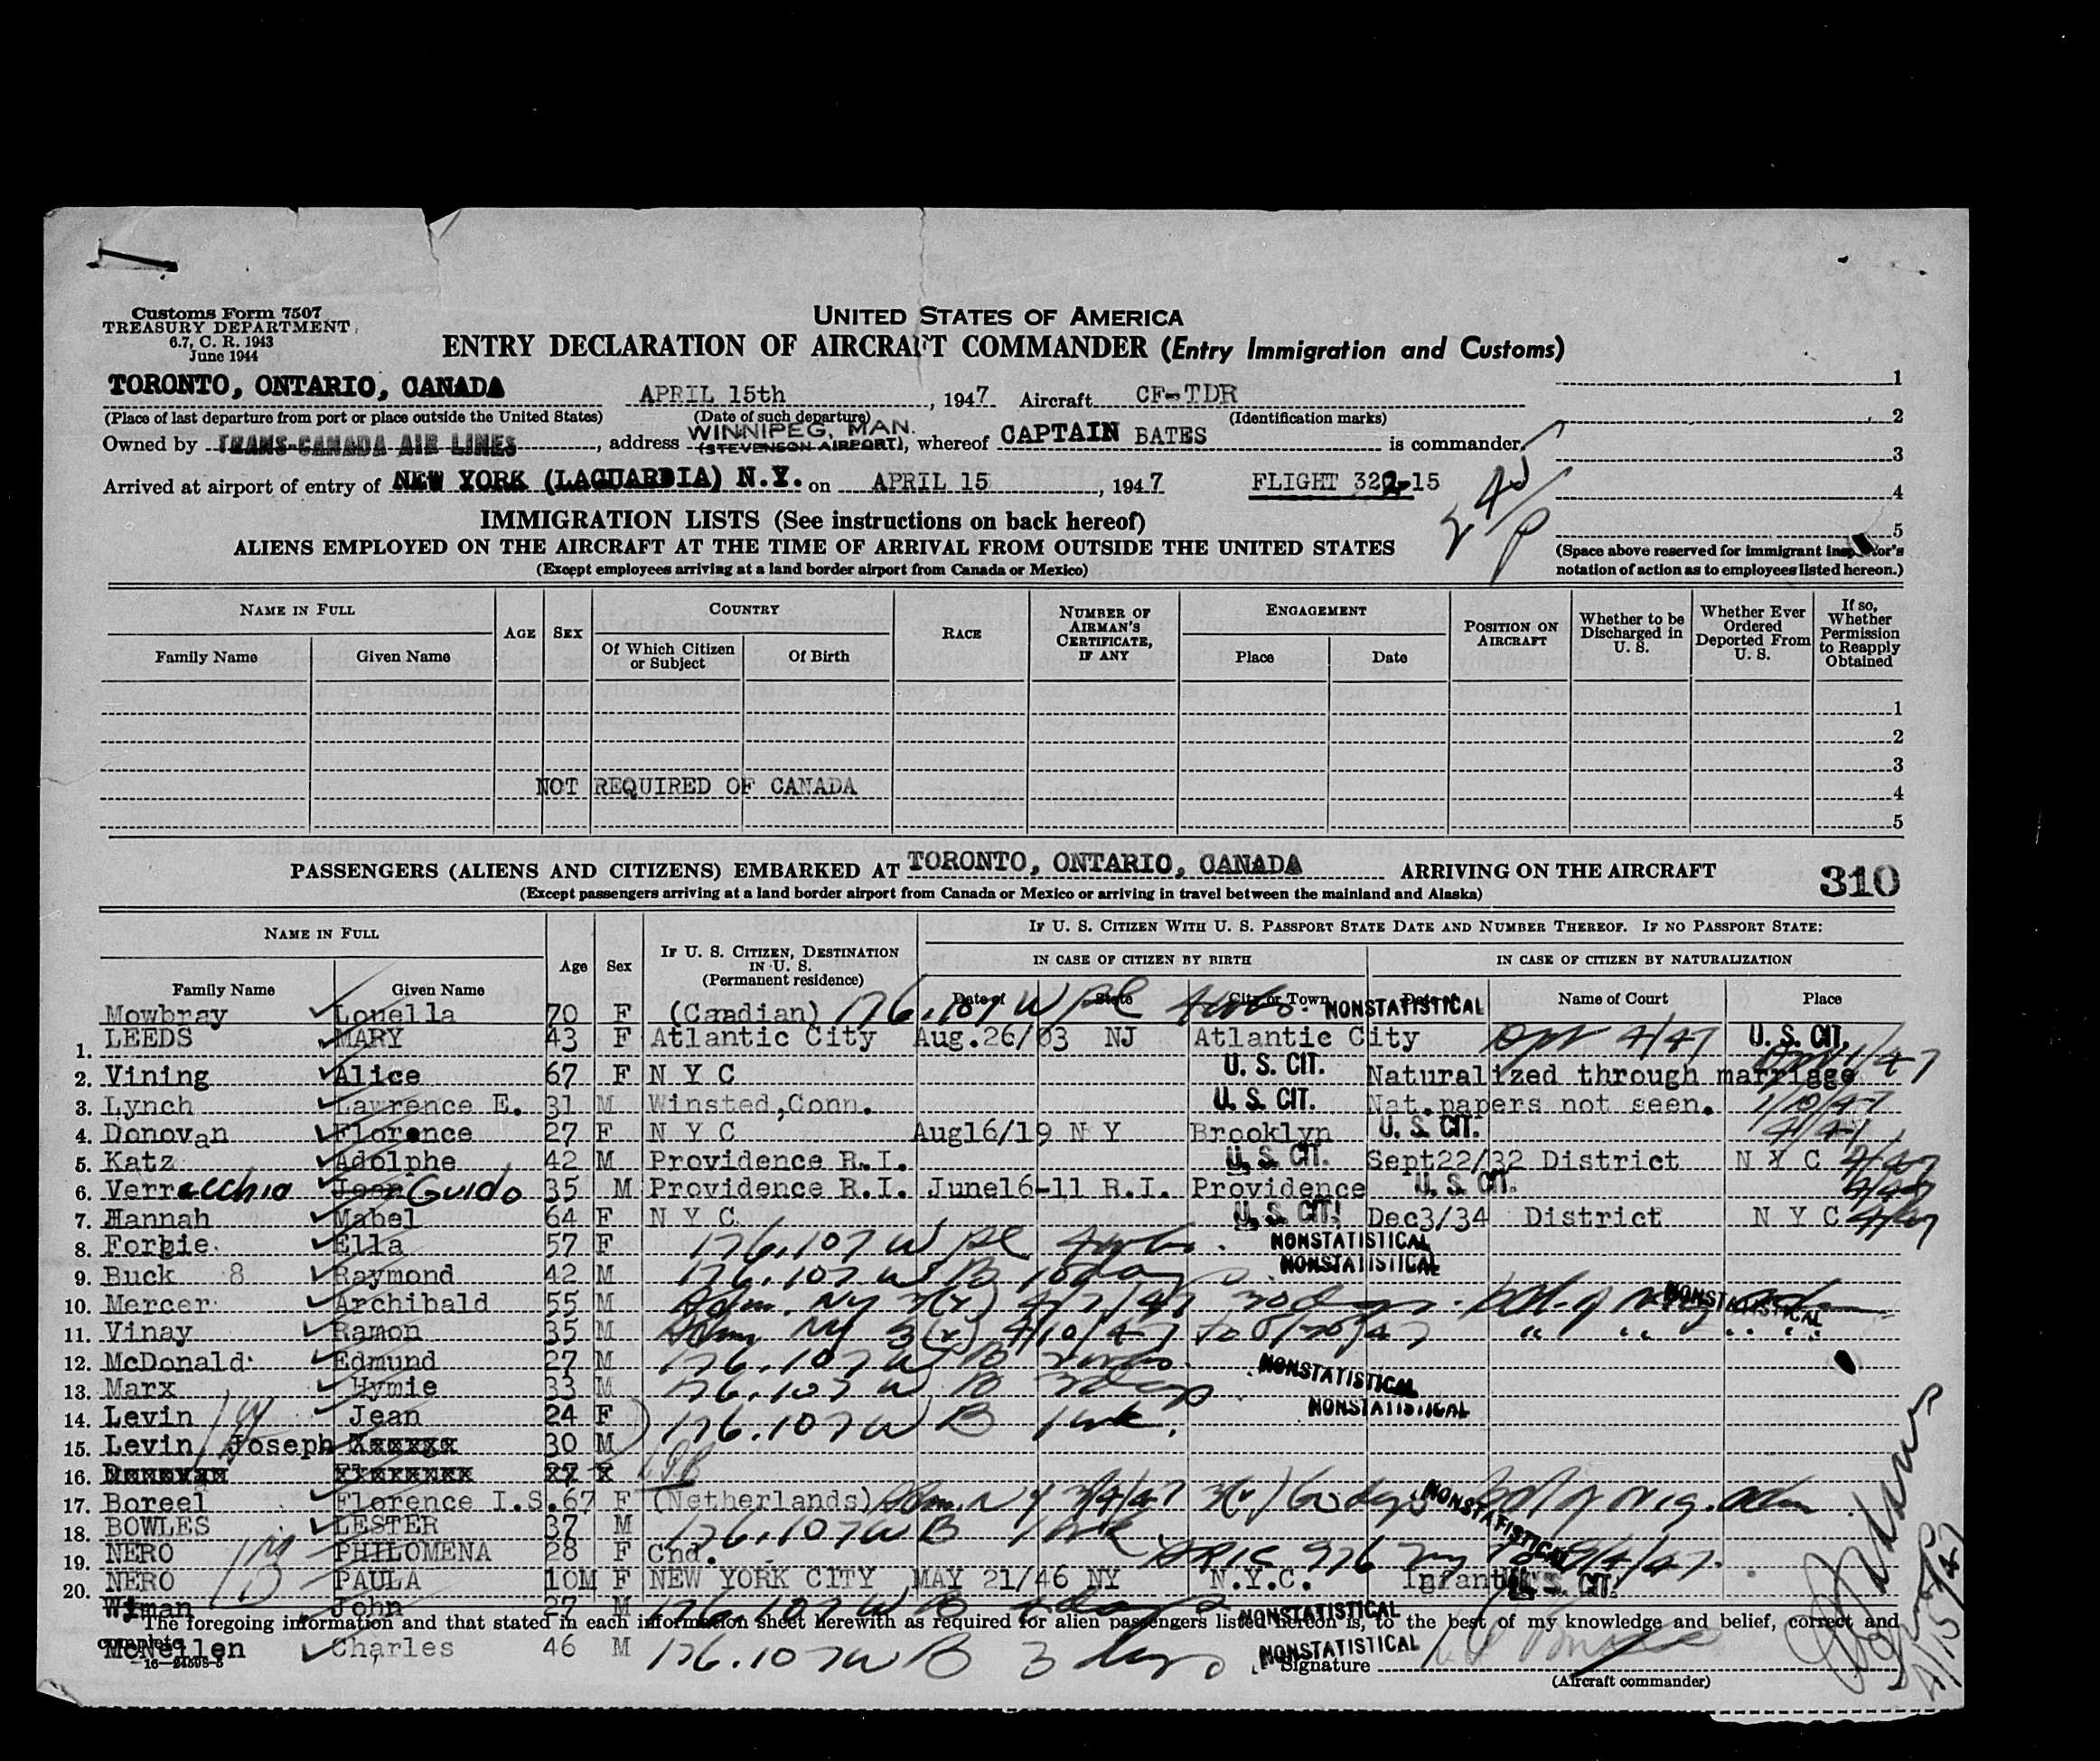 Customs Form 7507
TREASURY DEPARTMENT
6.7, C. R. 1943
June 1944
UNITED STATES OF AMERICA
ENTRY DECLARATION OF AIRCRAFT COMMANDER (Entry Immigration and Customs)
TORONTO, ONTARIO, CANADA APRIL 15th, 1947 Aircraft CF-TDR
(Place of last departure from port or place outside the United States) (Date of such departure) (Identification marks)
Owned by TRANS-CANADA AIR LINES, address WINNIPEG, MAN. (STEVENSON AIRPORT), whereof CAPTAIN BATES is commander.
Arrived at airport of entry of NEW YORK (LAGUARDIA) N.Y. on APRIL 15, 1947 FLIGHT 322-15
1
2
3
4
5
(Space above reserved for immigrant inspector's
notation of action as to employees listed hereon.)
IMMIGRATION LISTS (See instructions on back hereof)
ALIENS EMPLOYED ON THE AIRCRAFT AT THE TIME OF ARRIVAL FROM OUTSIDE THE UNITED STATES
(Except employees arriving at a land border airport from Canada or Mexico)
NAME IN FULL AGE SEX COUNTRY RACE NUMBER OF AIRMAN'S CERTIFICATE, IF ANY ENGAGEMENT POSITION ON AIRCRAFT Whether to be Discharged in U. S. Whether Ever Ordered Deported From U. S. If so, Whether Permission to Reapply Obtained
Family Name Given Name Of Which Citizen or Subject Of Birth Place Date
1
2
3
NOT REQUIRED OF CANADA
4
5
PASSENGERS (ALIENS AND CITIZENS) EMBARKED AT TORONTO, ONTARIO, CANADA ARRIVING ON THE AIRCRAFT 310
(Except passengers arriving at a land border airport from Canada or Mexico or arriving in travel between the mainland and Alaska)
NAME IN FULL Age Sex IF U. S. CITIZEN, DESTINATION IN U. S. (Permanent residence) IF U. S. CITIZEN WITH U. S. PASSPORT STATE DATE AND NUMBER THEREOF. IF NO PASSPORT STATE:
IN CASE OF CITIZEN BY BIRTH IN CASE OF CITIZEN BY NATURALIZATION
Family Name Given Name Date of State City or Town Name of Court Place
Mowbray Louella 70 F (Caadian) 176.107 W NONSTATISTICAL
1. LEEDS MARY 43 F Atlantic City Aug.26/03 NJ Atlantic City 4/47 U. S. CIT.
2. Vining Alice 67 F N Y C U. S. CIT. Naturalized through marriage
3. Lynch Lawrence E. 31 M Winsted,Conn. U. S. CIT. Nat.papers not seen. 1/10/47
4. Donovan Florence 27 F N Y C Aug16/19 N Y Brooklyn U. S. CIT.
5. Katz Adolphe 42 M Providence R.I. U. S. CIT. Sept22/32 District N Y C
6. Verrecchio Jean Guido 35 M Providence R.I. June16-11 R.I. Providence U. S. CIT.
7. Hannah Mabel 64 F N Y C U. S. CIT. Dec3/34 District N Y C
8. Forbie Ella 57 F 176.107 W NONSTATISTICAL
9. Buck 8 Raymond 42 M 176.107 W B 10 days NONSTATISTICAL
10. Mercer Archibald 55 M NONSTATISTICAL
11. Vinay Ramon 35 M Adm NY 3(2) 4/10/47
12. McDonald Edmund 27 M 176.107 W B NONSTATISTICAL
13. Marx Hymie 33 M 176.107 W B NONSTATISTICAL
14. Levin Jean 24 F 176.107 W B 1 wk.
15. Levin Joseph 30 M
16. 27
17. Boreel Florence I.S. 67 F (Netherlands) Adm. NY NONSTATISTICAL
18. BOWLES LESTER 37 M 176.107 W B 1 wk
19. NERO PHILOMENA 28 F Cnd.
20. NERO PAULA 10M F NEW YORK CITY MAY 21/46 NY N.Y.C. Infant U. S. CIT.
Wiman John 27 M 176.107 W B NONSTATISTICAL
The foregoing information and that stated in each information sheet herewith as required for alien passengers listed hereon is, to the best of my knowledge and belief, correct and
complete
McNellen Charles 46 M 176.107 W B 3 days NONSTATISTICAL
Signature
(Aircraft commander)
4/15/47